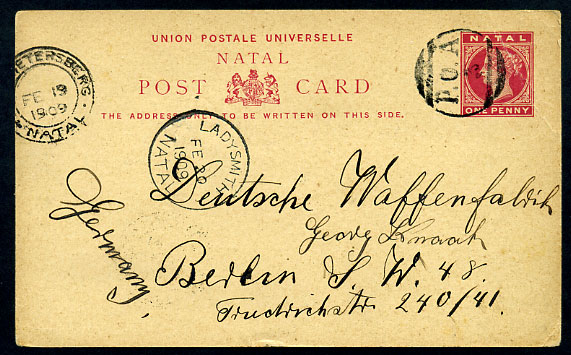 UNION POSTALE UNIVERSELLE
NATAL
POST CARD
THE ADDRESS ONLY TO BE WRITTEN ON THIS SIDE.
NATAL
ONE PENNY
P.O.A
ETERSBERG.
FE 19
1909
NATAL
LADYSMITH
FE 20
1909
NATAL
Deutsche Waffenfabrik
Georg Knaak
Berlin S. W. 48.
Friedrichstr. 240/41.
Germany.